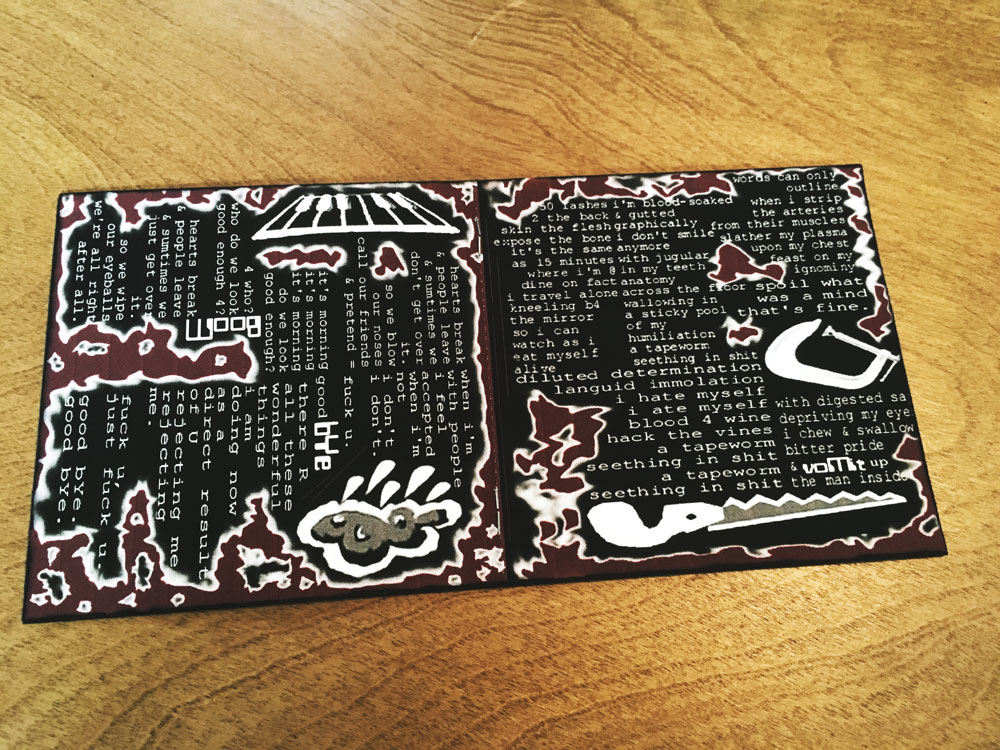 hearts break
& people leave
& sumtimes we
don't get over
it.
so we blow
our noses
call our friends
& pretend =
it's morning
it's morning
it's morning
do we look
good enough?
who do we look
good enough 4?
4 who?
boom
hearts break
& people leave
& sumtimes we
just get over
it.
so we wipe
our eyeballs
we're all right
after all.
when i'm
with people
i feel
accepted
when i'm
not
i don't.
i don't.
fuck u.
good bye
there R
all these
wonderful
things
i am
doing now
as a
direct result
of U
rejecting me
rejecting
me.
fuck u,
just, fuck u.
good bye.
good bye.
50 lashes
2 the back &
skin the flesh
expose the bone
it's the same
as 15 minutes
where i'm @
dine on fact
i travel alone
kneeling b4
the mirror
so i can
watch as i
eat myself
alive
i'm blood-soaked
gutted
graphically
i don't smile
anymore
with jugular
in my teeth
anatomy
across the floor
wallowing in
a sticky pool
of my
humiliation
a tapeworm
seething in shit
words can only
outline
when i strip
the arteries
from their muscles
slather my plasma
upon my chest
feast on my
ignominy
spoil what
was a mind
that's fine.
diluted determination
languid immolation
i hate myself
i ate myself
blood 4 wine
hack the vines
a tapeworm
seething in shit
a tapeworm
seething in shit
with digested sa
depriving my eye
i chew & swallow
bitter pride
& vomit it up
the man inside